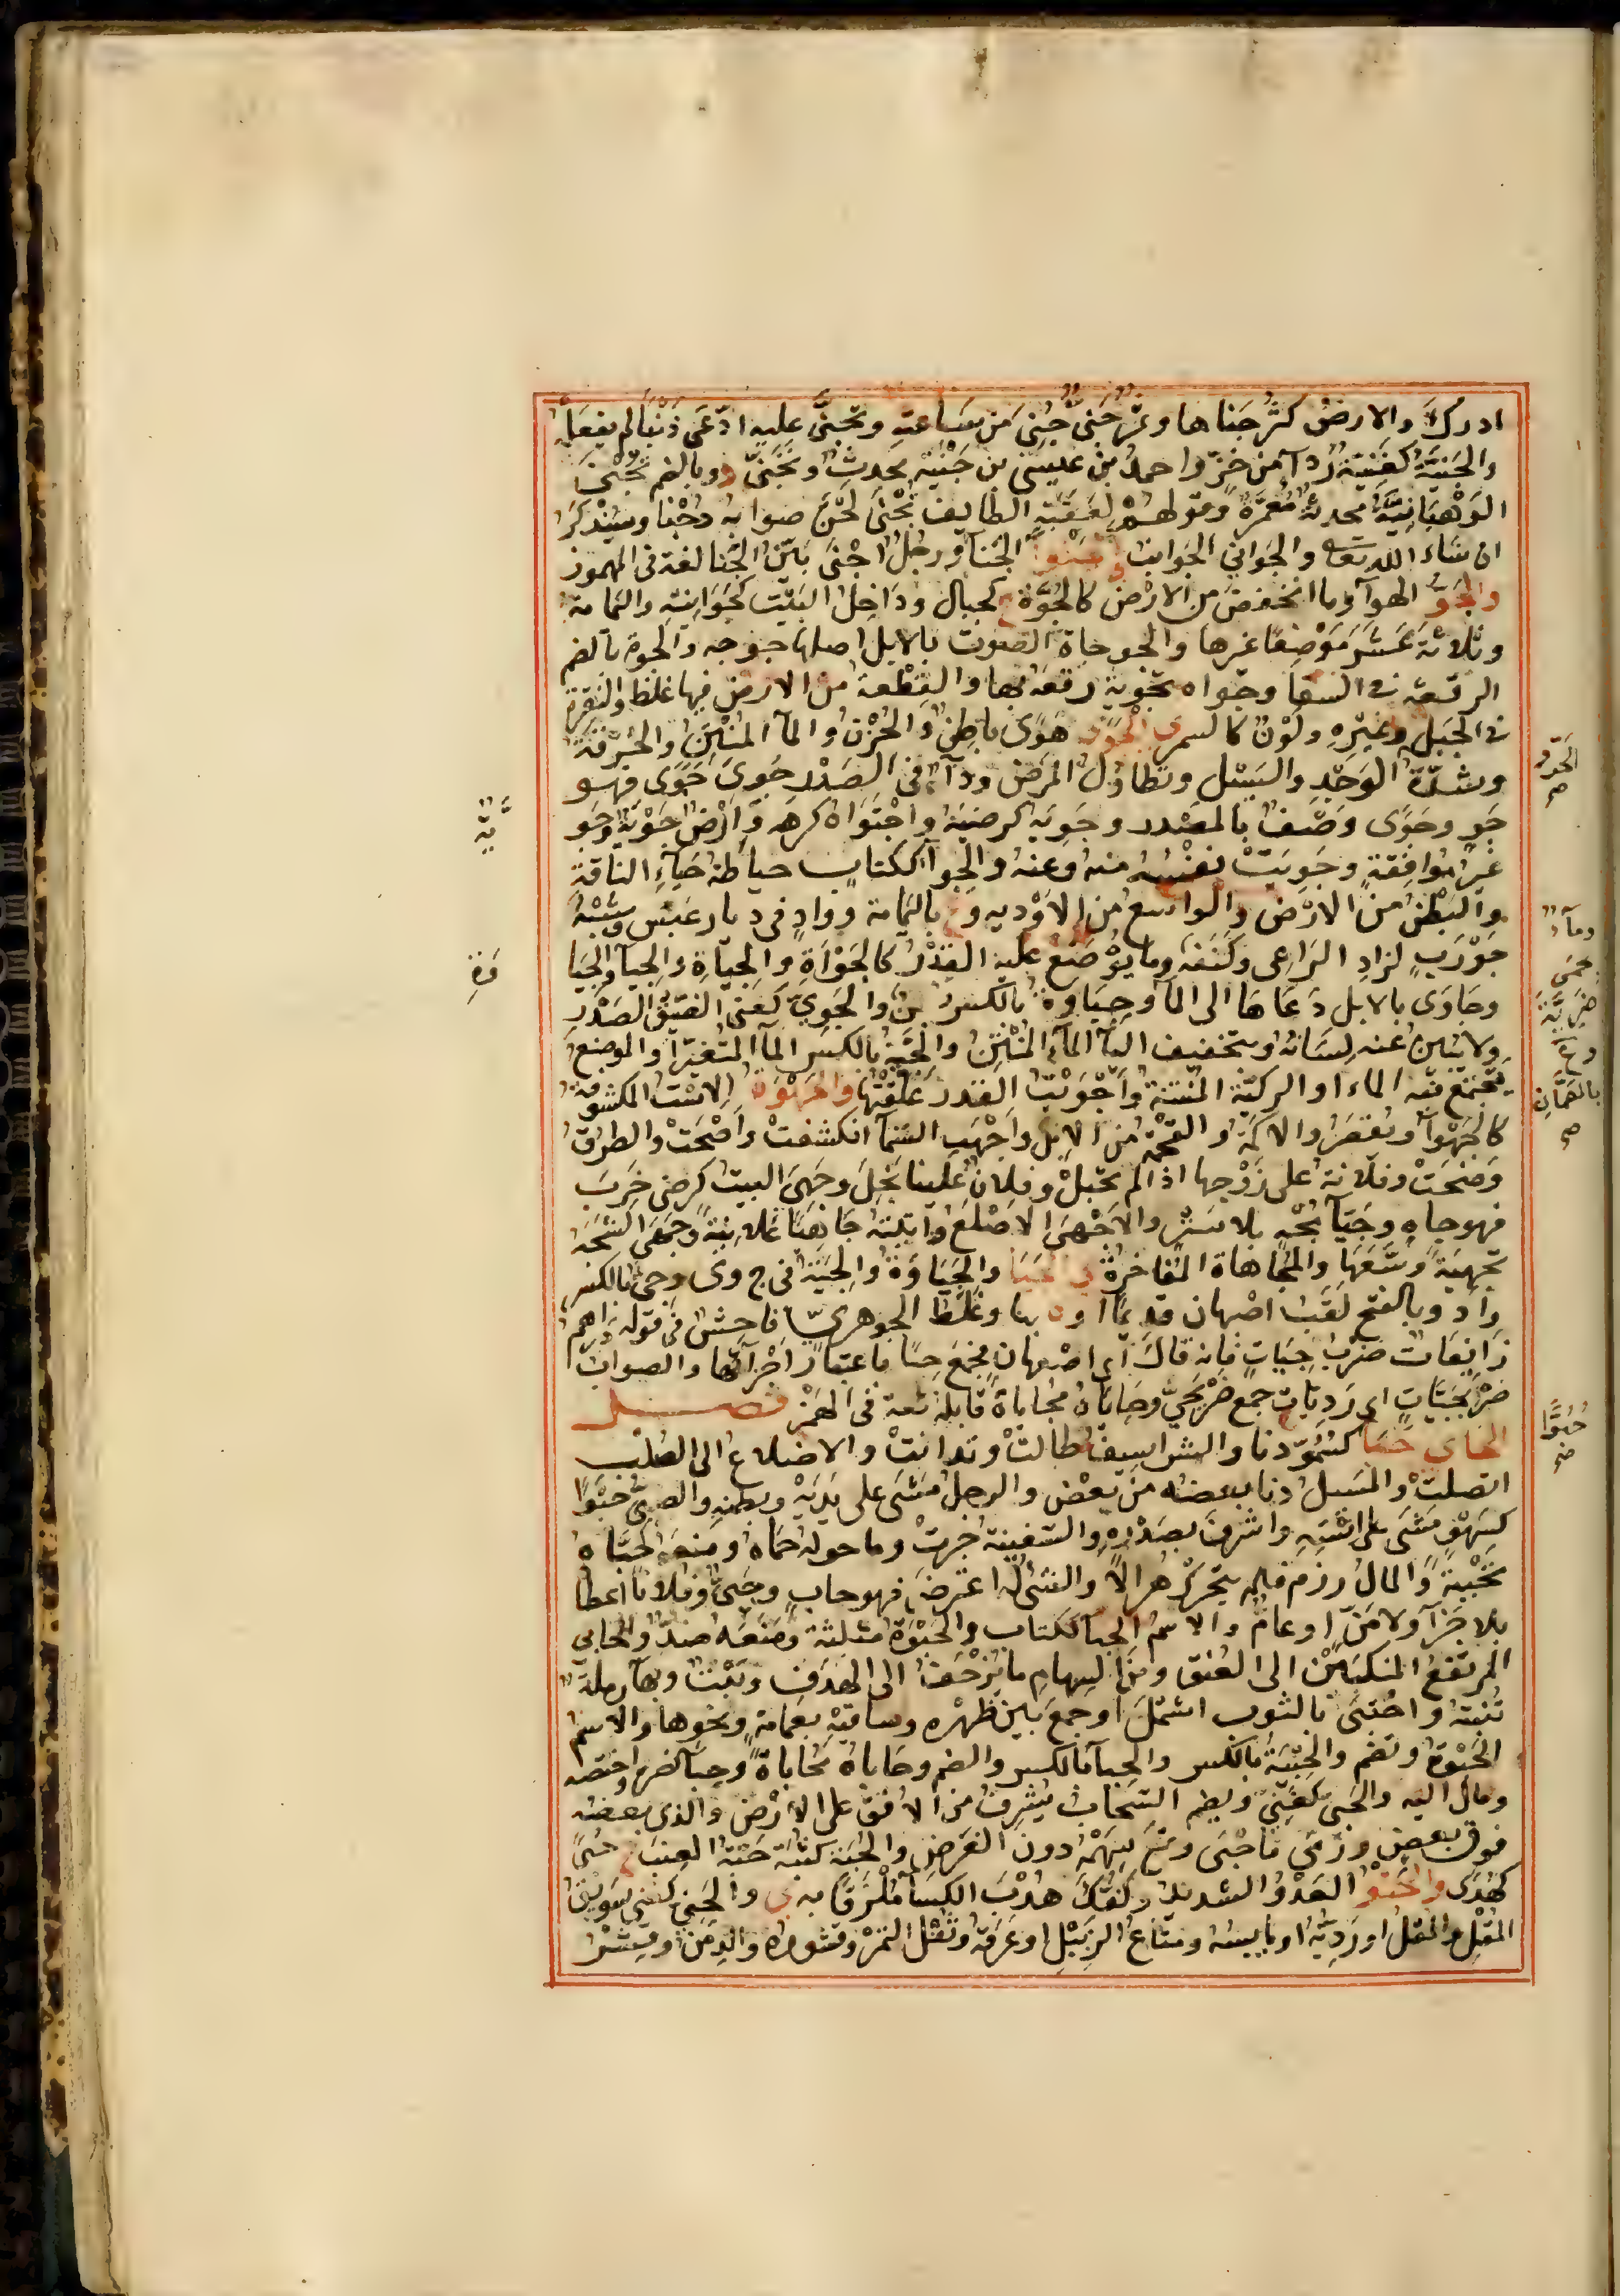 ادرك والارض كثر جناها وثمر جنى جنى من ساعته وتجنى عليه ادعى ذنبا لم يفعله
والجنية كغنية رداء من خز واحمد بن عيسى بن جنية محدث وتجنى د وبالضم تجنى
الوهبانية محدثة معمرة وقولهم لعقبة الطايف تجنى لحن صوابه دجنا وسيذكر
ان شاء الله تعه والجوانى الجوانب الجنا ورجل اجنى بين الجنا لغة فى المهموز
والجو الهوآ وما انخفض من الارض كالجوة ج كجبال وداخل البيت كجوانيه واليمامة
وثلاثة عشر موضعا غيرها والجوجاة الصوت بالابل اصلها جوجوه والجوة بالضم
الرقعة فى السقا وجواه تجوية رقعه بها والقطعة من الارض فيها غلظ والنقرة
فى الجبل وغيره ولون كالسمرة الجوى هوى باطن والحزن والمآ المنتن والحرقة
وشدة الوجد والسل وتطاول المرض ودآء فى الصدر جوى جوى فهو
جو وجوى وصف بالمصدر وجويه كرضيه واجتواه كرهه وارض جوية وجو
غير موافقة وجويت نفسه منه وعنه والجوآ ككتاب حياطة حيآء الناقة
والبطن من الارض والواسع من الاودية وع باليمامة وواد فى ديار عبس وشبه
جورب لزاد الراعى وكنفه وما يوضع عليه القدر كالجوآة والجيآة والجيآ والجيا
وجاوى بالابل دعاها الى المآ وجياوة بالكسر بطن والجوى كغنى الضيق الصدر
ولا يبين عنه لسانه وبتخفيف اليآ المآء المنتن والجية بالكسر المآ المتغير او الموضع
يجتمع فيه الماء او الركية المنتنة واجويت القدر علقتها والجهوة الاست المكشوفة
كالجهوآ ويقصر والاكمة والقحمة من الابل واجهت السمآ انكشفت واصحت والطرق
وضحت وفلانة على زوجها اذا لم تحبل وفلان علينا بخل وجهى البيت كرضى خرب
فهو جاه وخبآ مجه بلا ستر والاجهى الاصلع واتيته جاهيا علانية وجهى الشجة
تجهية وسعها والمجاهاة المفاخرة ى الجيا والجياوة والجية فى ج وى وجى بالكسر
واد وبالفتح لقب اصبهان قديما او ة بها وغلط الجوهرى فاحش فى قوله دراهم
زايفات ضرب جيات فانه قال اى اصبهان فجمع جيا باعتبار اجزآئها والصواب
ضربجيات اى رديات جمع ضربجى وجاياه مجاياة قابله لغة فى الهمز فصل
الحاى حبا كسمو دنا والشراسيف طالت وتدانت والاضلاع الى الصلب
اتصلت والمسيل دنا بعضه من بعض والرجل مشى على يديه وبطنه والصبى حبوا
كسهو مشى على استه واشرف بصدره والسفينة جرت وما حوله حماه ومنعه كحباه
تحبية والمال رزم فلم يتحرك هزالا والشئ له اعترض فهو حاب وحبى وفلانا اعطا
بلا جزآ ولا من او عام والاسم الحبآ ككتاب والحبوة مثلثة ومنعه ضد والحابى
المرتفع المنكبين الى العنق ومن السهام ما يزحف الى الهدف ونبت وبهآ رملة
تنبته واحتبى بالثوب اشتمل او جمع بين ظهره وساقيه بعمامة ونحوها والاسم
الحبوة وتضم والحبية بالكسر والحبآ بالكسر والضم وحاباه محاباة وحبآ نصره واختصه
ومال اليه والحبى كغنى ويضم السحاب يشرف من الافق على الارض والذى بعضه
فوق بعض ورمى فاحبى وقع سهمه دون الغرض والحبة كثبة حبة العنب ج حبى
كهدى والحتو العدو الشديد وكفك هدب الكسآ ملزقا به ى والحتى كغنى سويق
المقل والمقل او رديه او يابسه ومتاع الزبيل او عرقه وثفل التمر وقشوره والدمن وقشر
الحرقة
صح
ومآء
بحمى
ضرية
وع
بالصمان
صح
حبوا
ية